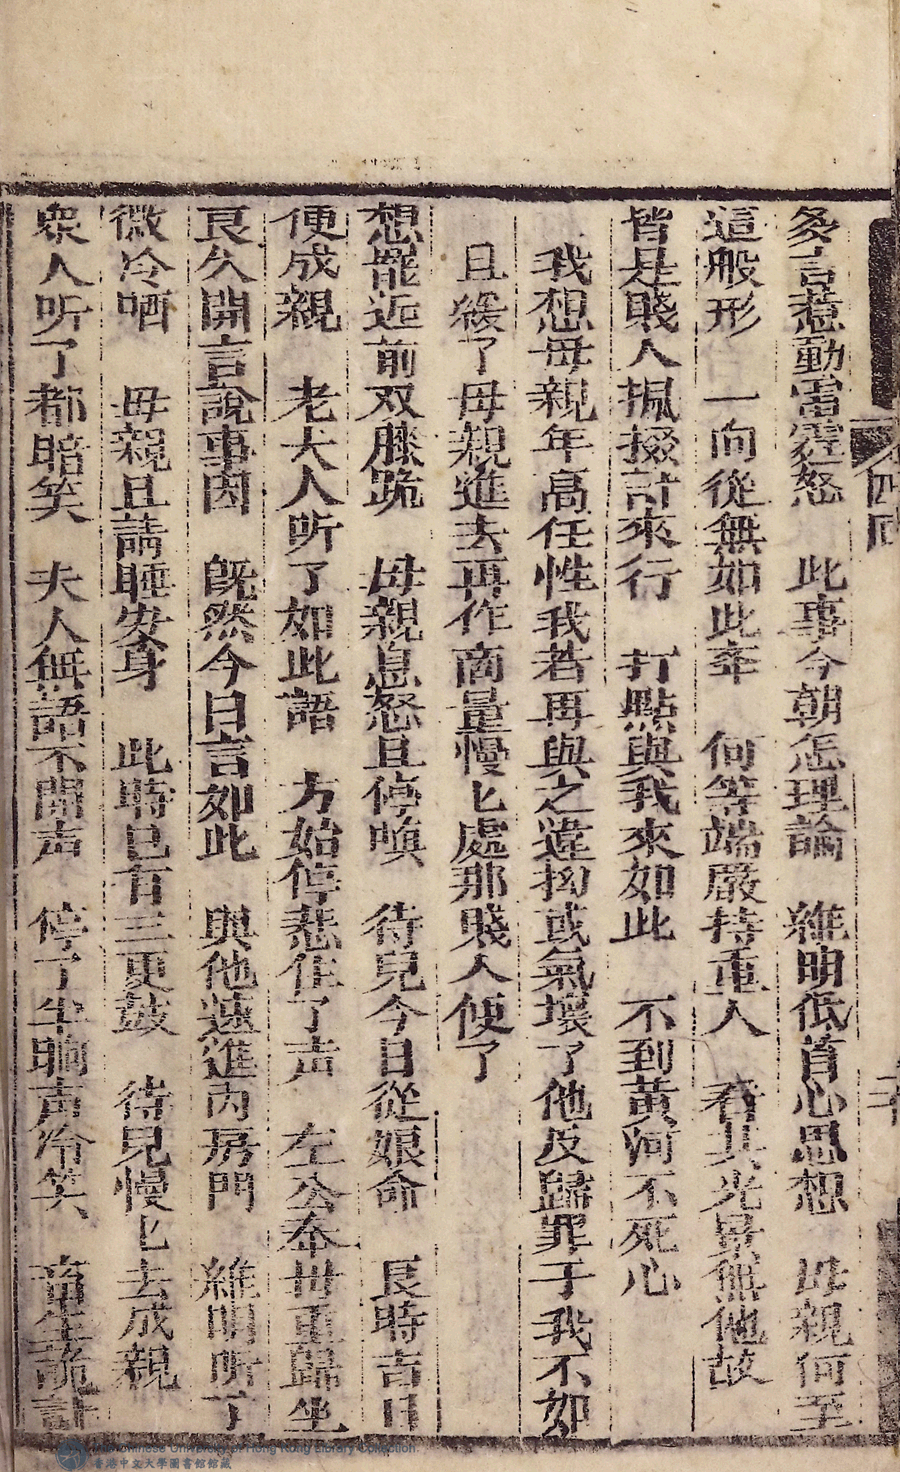 多言惹動雷霆怒　此事今朝怎理論　維明低首心思想　母親何至
這般形　一向從無如此牽　何等端嚴持重人　看其光景無他故
皆是賤人掇計來行　打點與我來如此　不到黃河不死心
我想母親年高任性我若再與之違拗或氣壞了他反歸罪于我不如
且緩了母親進去再作商量慢匕處那賤人便了
想罷近前双膝跪　母親息怒且停嗔　待兒今日從娘命　良時吉日
便成親　老夫人听了如此語　方始停悲住了声　左公奉世重歸坐
良久開言說事因　既然今日言如此　與他速進丙房門　維明听了
微冷哂　母親且請睡安身　此時已有三更鼓　待兒慢匕去成親
衆人听了都暗笑　夫人無語不開声　停了半晌声冷笑　畜生詭計
四回
香港中文大學圖書館館藏